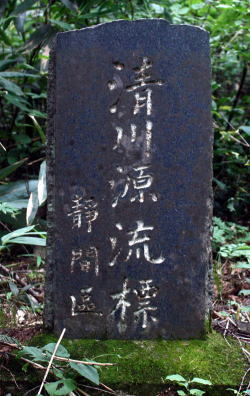 清川源流標
靜間區